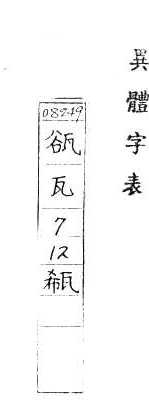 異體字表
08249
⿰谷瓦
瓦
7
12
瓻